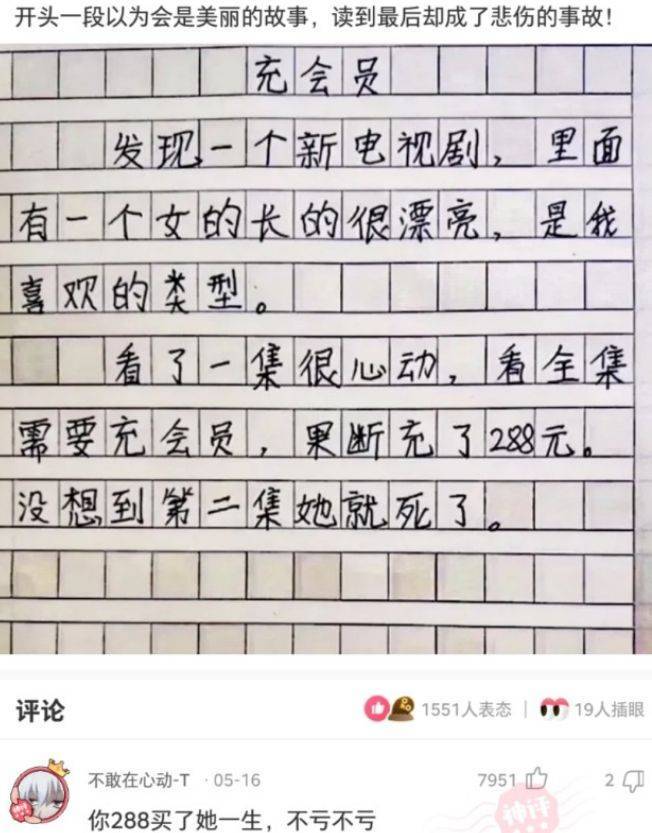 开头一段以为会是美丽的故事，读到最后却成了悲伤的事故！
充会员
发现一个新电视剧，里面
有一个女的长的很漂亮，是我
喜欢的类型。
看了一集很心动，看全集
需要充会员，果断充了288元。
没想到第二集她就死了。
评论
1551人表态 | 19人插眼
不敢在心动-T ·05-16
7951 2
你288买了她一生，不亏不亏
神评